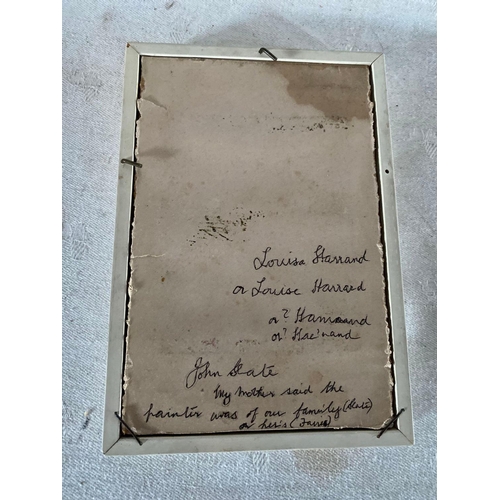 Louisa Harrand
or Louise Harraed
or? Hammand
or? Hae'nand
John Skate
My Mother said the
painter was of our family (Skate)
or her's (Farres)